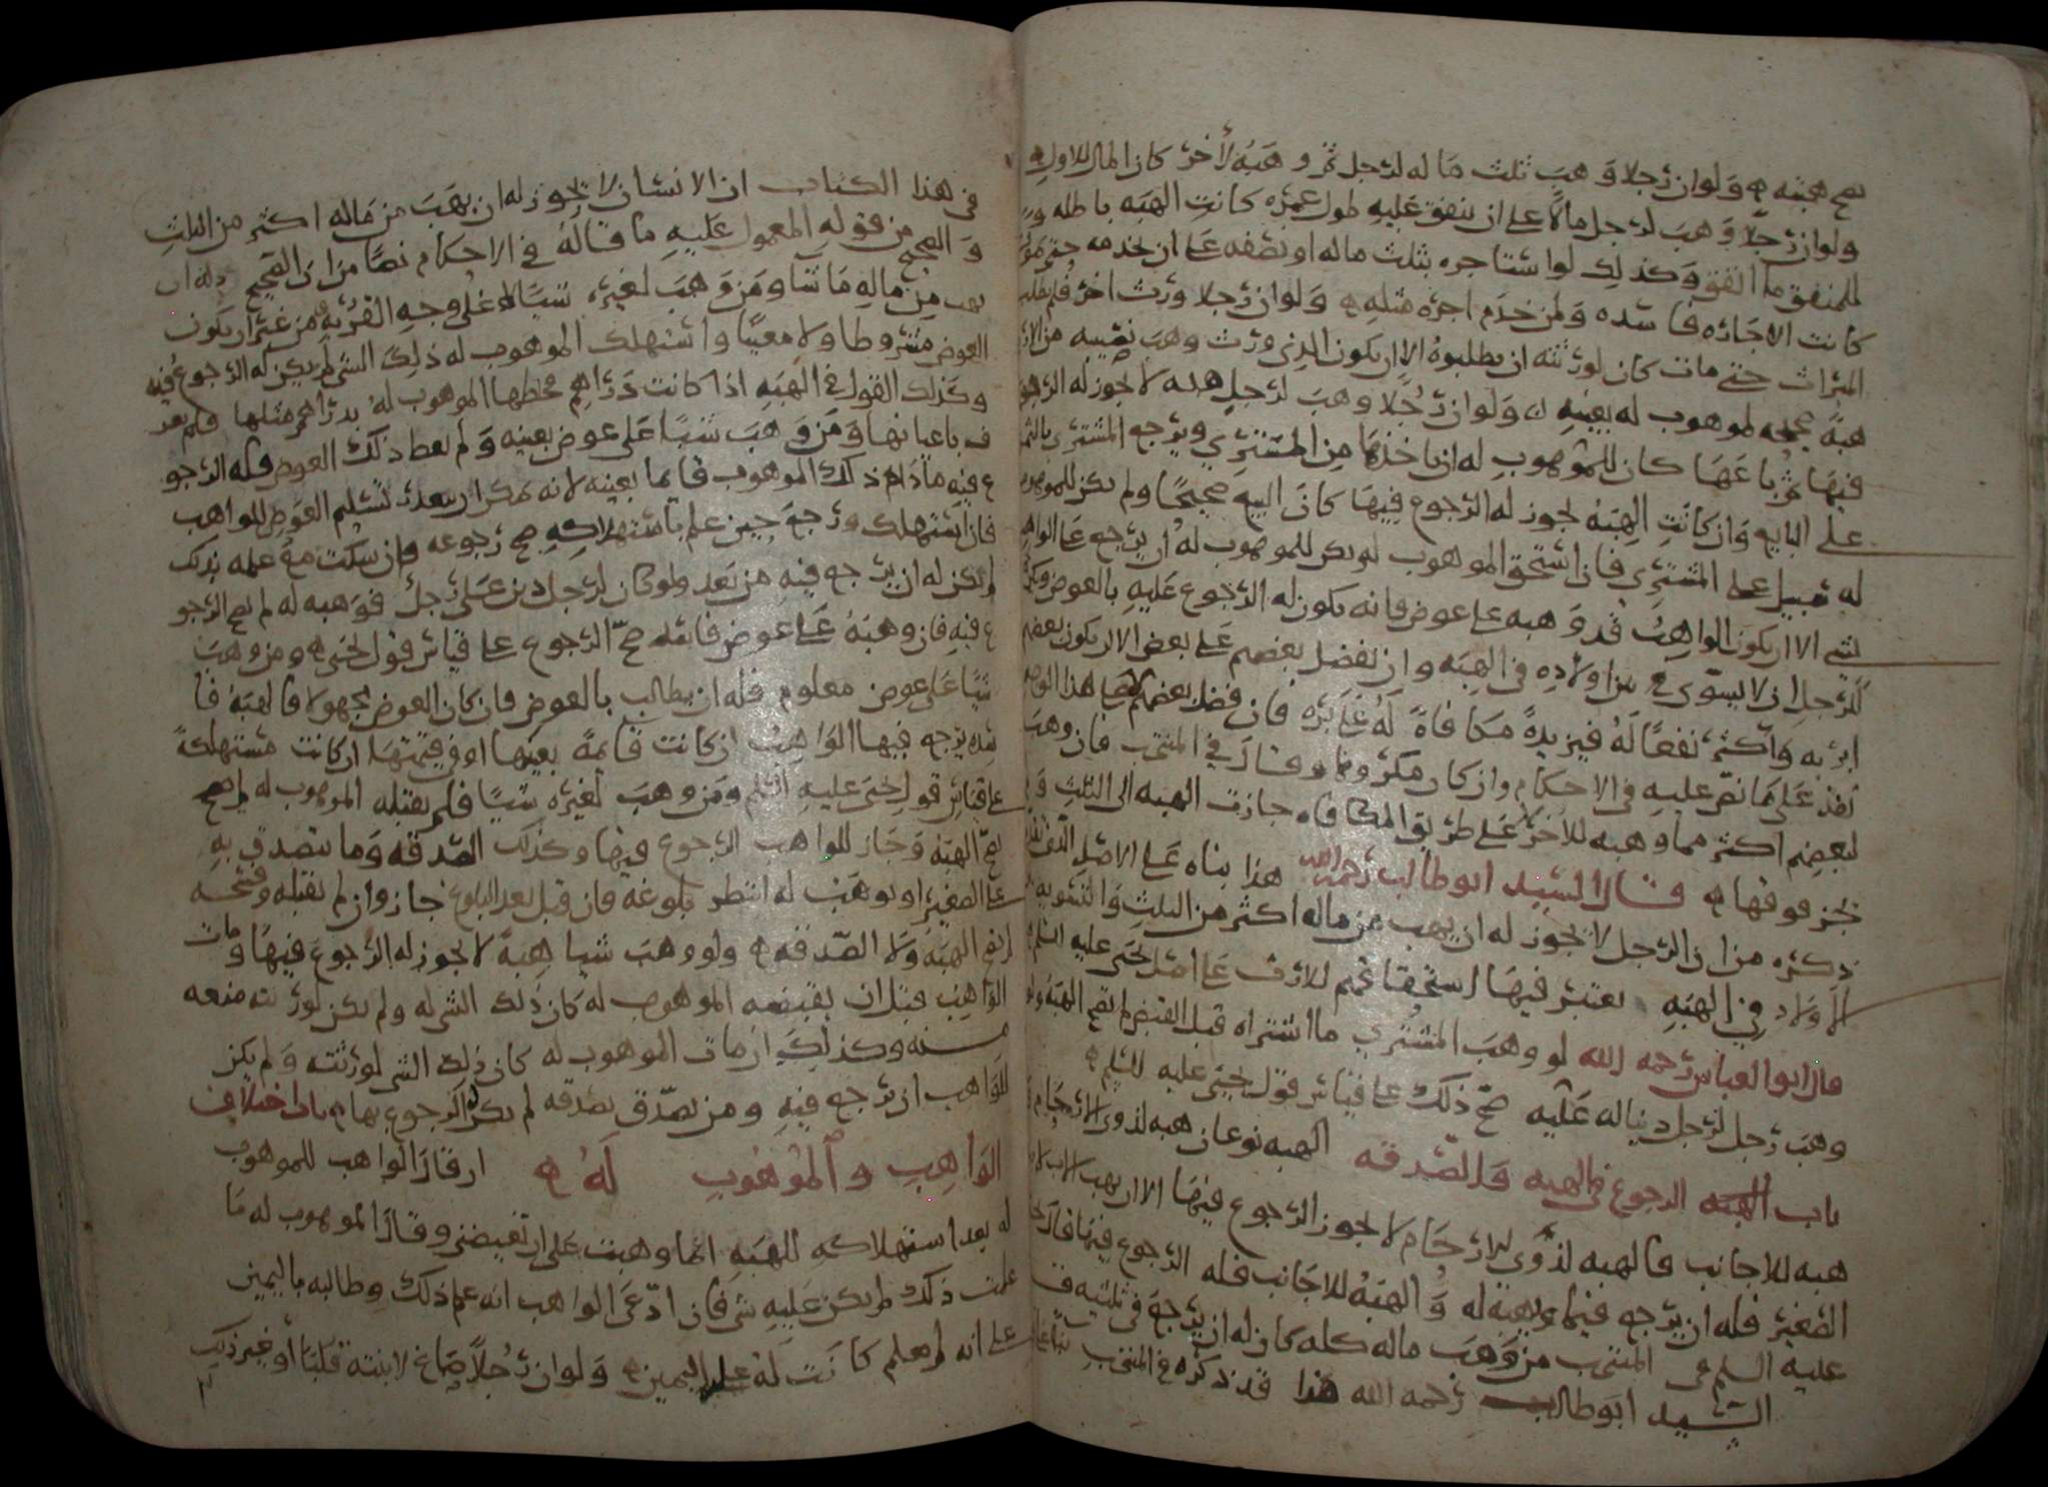 تصح هبته ه ولو ان رجلا وهب ثلث ماله لرجل ثم وهبه لآخر كان المال للاول ه
ولو ان رجلا وهب لرجل مالا على ان ينفق عليه طول عمره كانت الهبه باطله
للمنفق ما انفق وكذلك لو استاجره بثلث ماله او نصفه على ان خدمه حتى
كانت الاجاره فاسده ولمن خدم اجره مثله ه ولو ان رجلا ورث اخر فلم يطلب
الميراث حتى مات كان لورثته ان يطلبوه الا ان يكون الذي ورث وهب نصيبه من
هبة صحيحه لموهوب له بعينه ه ولو ان رجلا وهب لرجل هبه لا يجوز له الرجوع
فيها ثم باعها كان للموهوب له ان ياخذها من المشتري ويرجع المشتري بالثمن
على البايع وان كانت الهبه يجوز له الرجوع فيها كان البيع صحيحا ولم يكن للموهوب
له سبيل على المشتري فان استحق الموهوب لم يكن للموهوب له ان يرجع على الواهب
بشي الا ان يكون الواهب قد وهبه على عوض فانه يكون له الرجوع عليه بالعوض
للرجل ان لا يسوي بين اولاده في الهبه وان يفضل بعضهم على بعض الا ان يكون بعضهم
ابر به واكثر نفعا له فيزيده مكافاة له على بره فان فضل بعضهم
نفذ على ما نص عليه في الاحكام وان كان مكروها وقال في المنتخب فان وهب
لبعضهم اكثر مما وهبه للاخر لا على طريق المكافاه جازت الهبه الى الثلث
يجز فوقها ه قال السيد ابو طالب رحمه الله هذا بناه على الاصل الذي
ذكره من ان الرجل لا يجوز له ان يهب من ماله اكثر من الثلث والتسويه
الاولاد في الهبه يعتبر فيها استحقاقهم للارث على اصل يحيى عليه السلم
قال ابو العباس رحمه الله لو وهب المشتري ما اشتراه قبل القبض لم تصح الهبه ولو
وهب رجل لرجل دينا له عليه صح ذلك على قياس قول يحيى عليه السلم ه
باب الهبه الرجوع في الهبه والصدقه الهبه نوعان هبه لذوي الارحام
هبه للاجانب فالهبه لذوي الارحام لا يجوز الرجوع فيها الا ان يهب الاب
الصغير فله ان يرجع فيما وهبه له والهبه للاجانب فله الرجوع فيها قال
عليه السلم في المنتخب من وهب ماله كله كان له ان يرجع في ثلثيه
السيد ابو طالب رحمه الله هذا قد ذكره في المنتخب
في هذا الكتاب ان الانسان لا يجوز له ان يهب من ماله اكثر من الثلث
والصحيح من قوله المعمول عليه ما قاله في الاحكام نصا من ان الصحيح له ان
يهب من ماله ما شا ومن وهب لغيره شيا لا على وجه القربه من غير ان يكون
العوض مشروطا ولا معينا واستهلك الموهوب له ذلك الشي لم يكن له الرجوع فيه
وكذلك القول في الهبه اذا كانت دراهم فخلطها الموهوب له بدراهم مثلها فلم يعرف
باعيانها ومن وهب شيا على عوض بعينه ولم يعط ذلك العوض فله الرجو
ع فيه ما دام ذلك الموهوب قايما بعينه لانه لم يكن بعد تسليم العوض للواهب
فان استهلك ورجع حين علم باستهلاكه صح رجوعه وان سكت مع علمه بذلك
لم يكن له ان يرجع فيه من بعد ولو كان لرجل دين على رجل فوهبه له لم يصح الرجو
ع فيه فان وهبه على عوض فاته صح الرجوع على قياس قول يحيى ه ومن وهب
شيا على عوض معلوم فله ان يطالب بالعوض فان كان العوض مجهولا فالهبه فا
سده يرجع فيها الواهب ان كانت قايمة بعينها او في قيمتها ان كانت مستهلكة
على قياس قول يحيى عليه السلم ومن وهب لغيره شيا فلم يقبله الموهوب له لم
تصح الهبه وجاز للواهب الرجوع فيها وكذلك الصدقه وما يتصدق به
على الصغير او يوهب له انتظر بلوغه فان قبل بعد البلوغ جاز وان لم يقبله وفسخه
لم تصح الهبه ولا الصدقه ه ولو وهب شيا هبة لا يجوز له الرجوع فيها ومات
الواهب قبل ان يقبضه الموهوب له كان ذلك الشي له ولم يكن لورثته منعه
منه وكذلك ان مات الموهوب له كان ذلك الشي لورثته ولم يكن
للواهب ان يرجع فيه ومن تصدق بصدقه لم يكن له الرجوع بها ه باب اختلاف
الواهب والموهوب له ه ان قال الواهب للموهوب
له بعد استهلاكه للهبه انما وهبت على ان تعوضني وقال الموهوب له ما
علمت ذلك لم يكن عليه شي فان ادعى الواهب انه علم ذلك وطالبه باليمين
على انه لم يعلم كانت له عليه اليمين ه ولو ان رجلا صاغ لابنته قلبا او غير ذلك